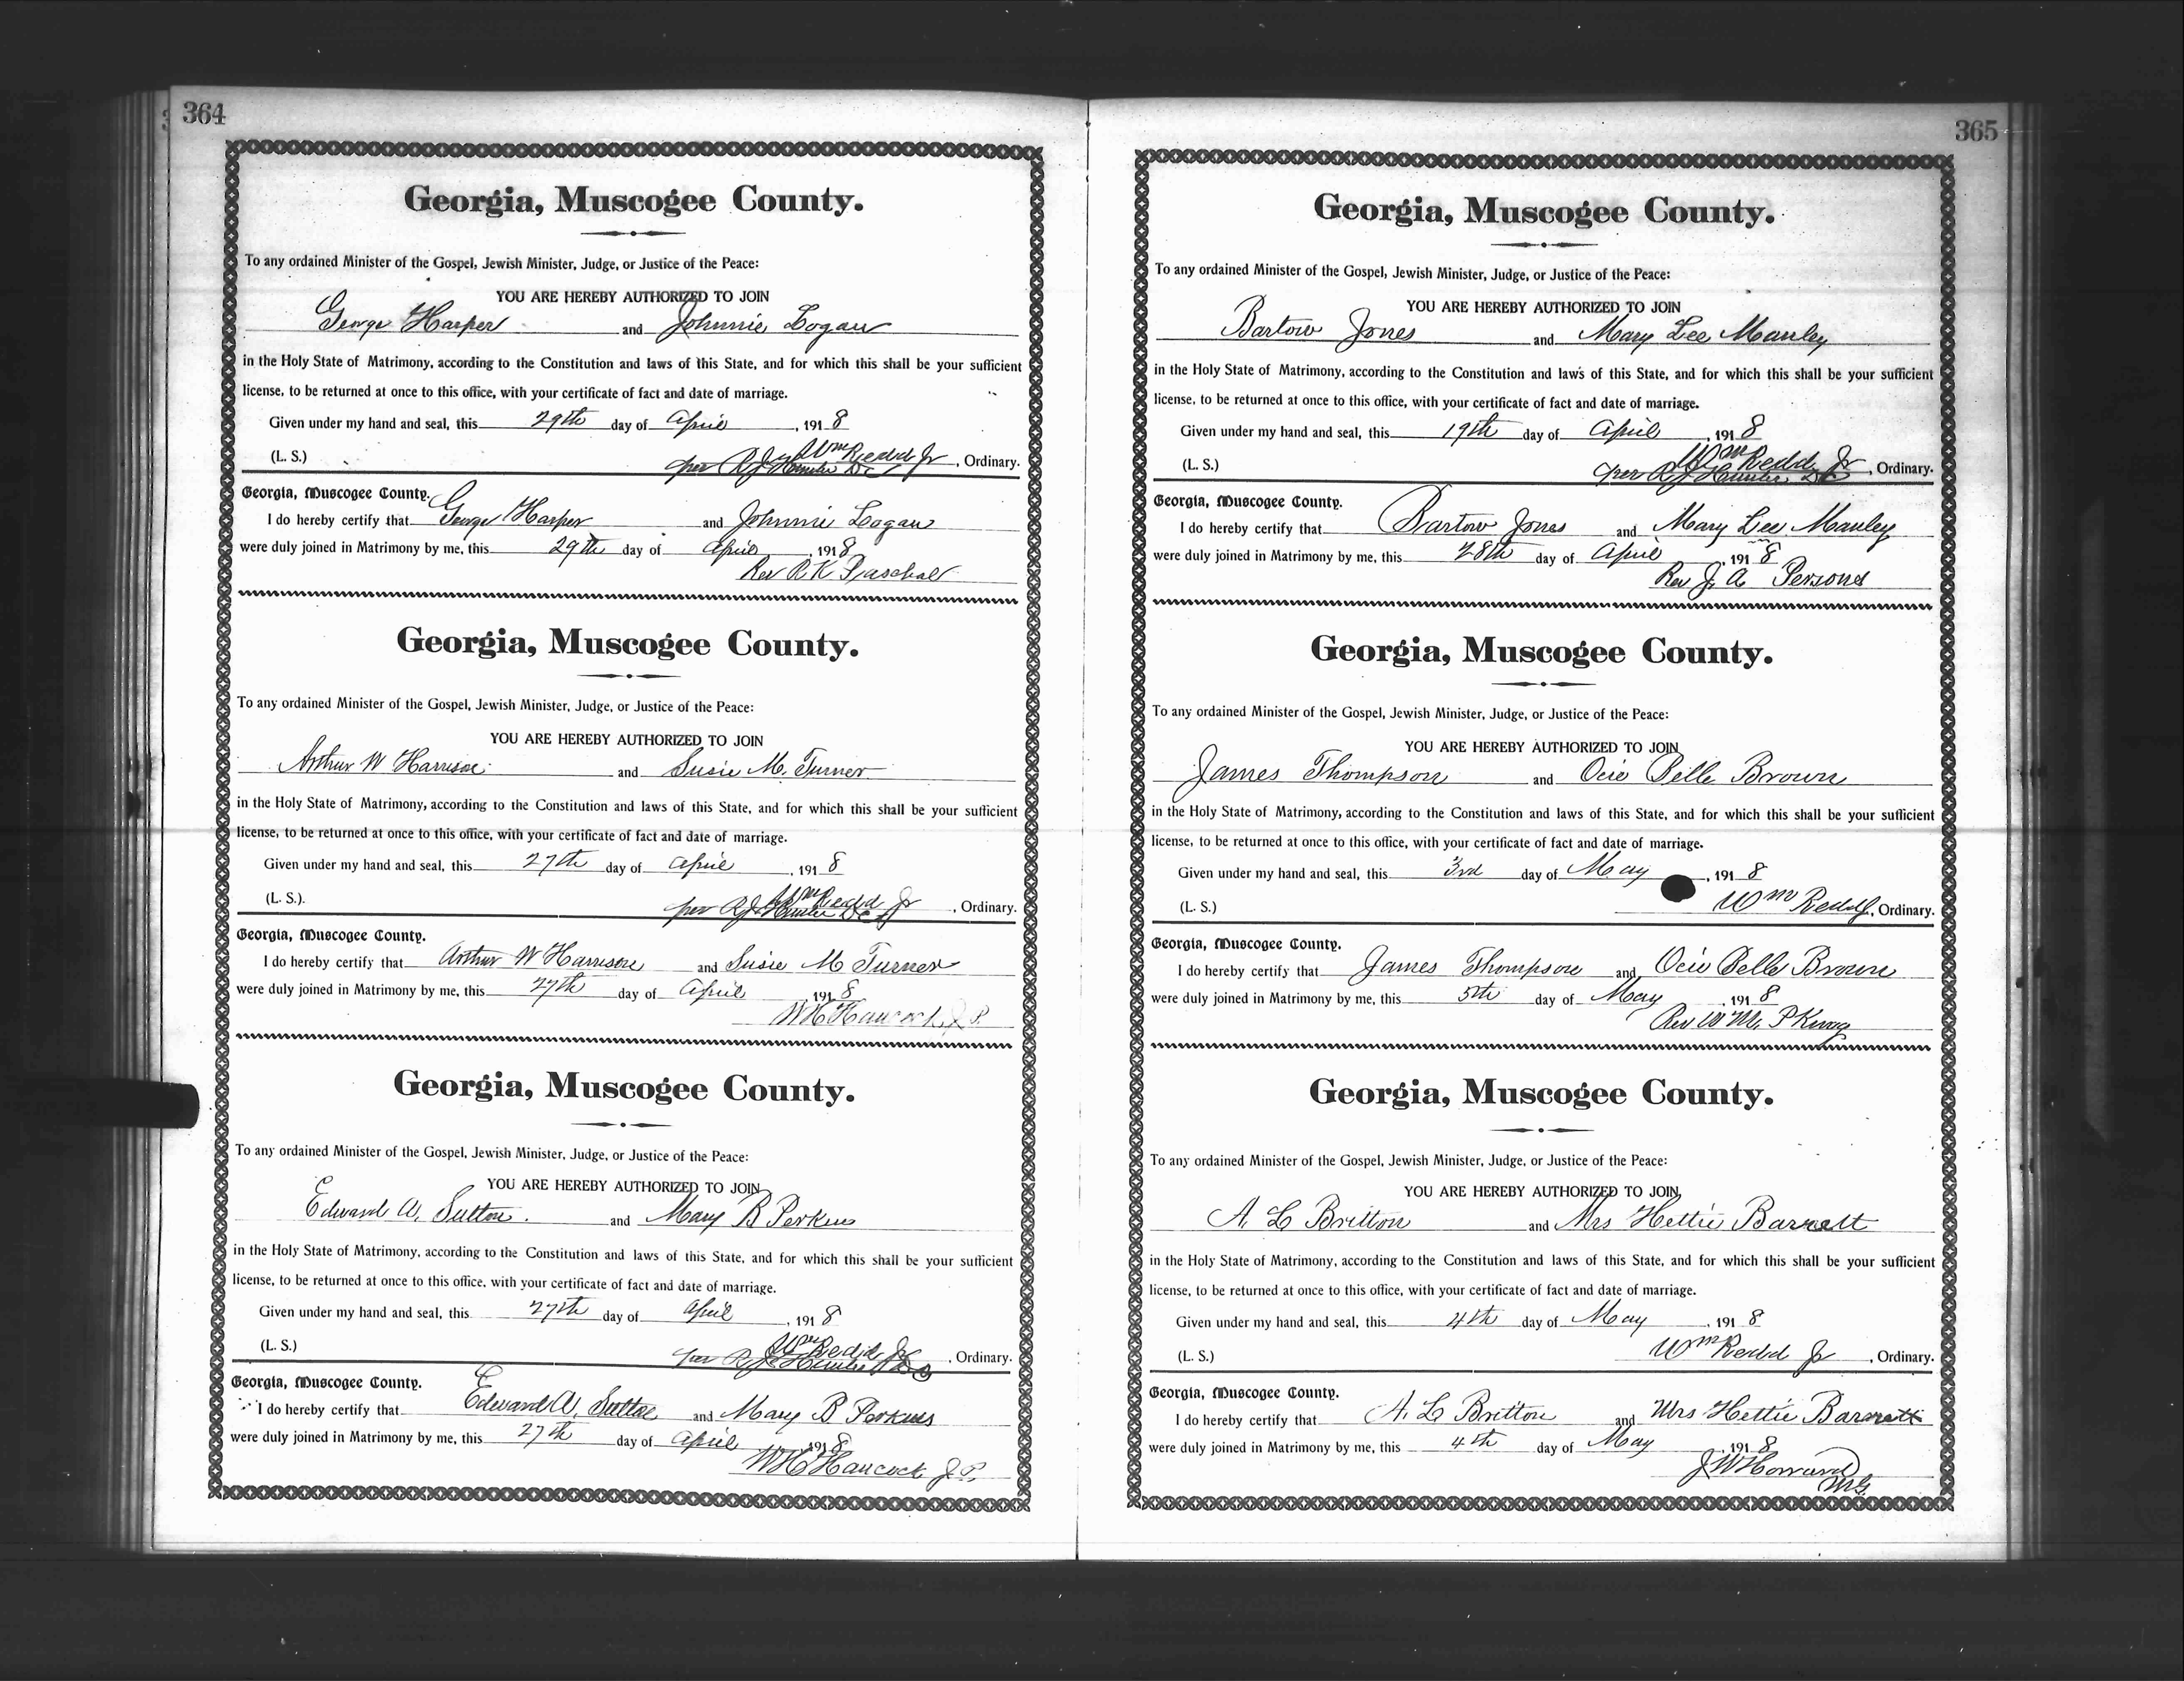 364
Georgia, Muscogee County.
To any ordained Minister of the Gospel, Jewish Minister, Judge, or Justice of the Peace:
YOU ARE HEREBY AUTHORIZED TO JOIN
George Harper and Johnnie Logan
in the Holy State of Matrimony, according to the Constitution and laws of this State, and for which this shall be your sufficient
license, to be returned at once to this office, with your certificate of fact and date of marriage.
Given under my hand and seal, this 29th day of April, 1918
Wm Redd Jr
(L. S.) per R J Hunter D C, Ordinary.
Georgia, Muscogee County.
I do hereby certify that George Harper and Johnnie Logan
were duly joined in Matrimony by me, this 29th day of April, 1918
Rev R K Paschal
Georgia, Muscogee County.
To any ordained Minister of the Gospel, Jewish Minister, Judge, or Justice of the Peace:
YOU ARE HEREBY AUTHORIZED TO JOIN
Arthur W Harrison and Susie M. Turner
in the Holy State of Matrimony, according to the Constitution and laws of this State, and for which this shall be your sufficient
license, to be returned at once to this office, with your certificate of fact and date of marriage.
Given under my hand and seal, this 27th day of April, 1918
Wm Redd Jr
(L. S.). per R J Hunter D C, Ordinary.
Georgia, Muscogee County.
I do hereby certify that Arthur W Harrison and Susie M Turner
were duly joined in Matrimony by me, this 27th day of April, 1918
W H Hancock J. P.
Georgia, Muscogee County.
To any ordained Minister of the Gospel, Jewish Minister, Judge, or Justice of the Peace:
YOU ARE HEREBY AUTHORIZED TO JOIN
Edward A. Sutton. and Mary B Perkins
in the Holy State of Matrimony, according to the Constitution and laws of this State, and for which this shall be your sufficient
license, to be returned at once to this office, with your certificate of fact and date of marriage.
Given under my hand and seal, this 27th day of April, 1918
Wm Redd Jr
(L. S.) per R J Hunter, Ordinary.
Georgia, Muscogee County.
I do hereby certify that Edward A. Sutton and Mary B Perkins
were duly joined in Matrimony by me, this 27th day of April, 1918
W H Hancock J. P.
365
Georgia, Muscogee County.
To any ordained Minister of the Gospel, Jewish Minister, Judge, or Justice of the Peace:
YOU ARE HEREBY AUTHORIZED TO JOIN
Bartow Jones and Mary Lee Manley
in the Holy State of Matrimony, according to the Constitution and laws of this State, and for which this shall be your sufficient
license, to be returned at once to this office, with your certificate of fact and date of marriage.
Given under my hand and seal, this 19th day of April, 1918
Wm Redd Jr
(L. S.) per R J Hunter D C, Ordinary.
Georgia, Muscogee County.
I do hereby certify that Bartow Jones and Mary Lee Manley
were duly joined in Matrimony by me, this 28th day of April, 1918
Rev J. A. Persons
Georgia, Muscogee County.
To any ordained Minister of the Gospel, Jewish Minister, Judge, or Justice of the Peace:
YOU ARE HEREBY AUTHORIZED TO JOIN
James Thompson and Ocie Belle Brown
in the Holy State of Matrimony, according to the Constitution and laws of this State, and for which this shall be your sufficient
license, to be returned at once to this office, with your certificate of fact and date of marriage.
Given under my hand and seal, this 3rd day of May, 1918
(L. S.) Wm Redd Jr, Ordinary.
Georgia, Muscogee County.
I do hereby certify that James Thompson and Ocie Belle Brown
were duly joined in Matrimony by me, this 5th day of May, 1918
Rev W M. P King
Georgia, Muscogee County.
To any ordained Minister of the Gospel, Jewish Minister, Judge, or Justice of the Peace:
YOU ARE HEREBY AUTHORIZED TO JOIN
A. L Britton and Mrs Hettie Barnett
in the Holy State of Matrimony, according to the Constitution and laws of this State, and for which this shall be your sufficient
license, to be returned at once to this office, with your certificate of fact and date of marriage.
Given under my hand and seal, this 4th day of May, 1918
(L. S.) Wm Redd Jr, Ordinary.
Georgia, Muscogee County.
I do hereby certify that A. L Britton and Mrs Hettie Barnett
were duly joined in Matrimony by me, this 4th day of May, 1918
J W Howard
M.G.